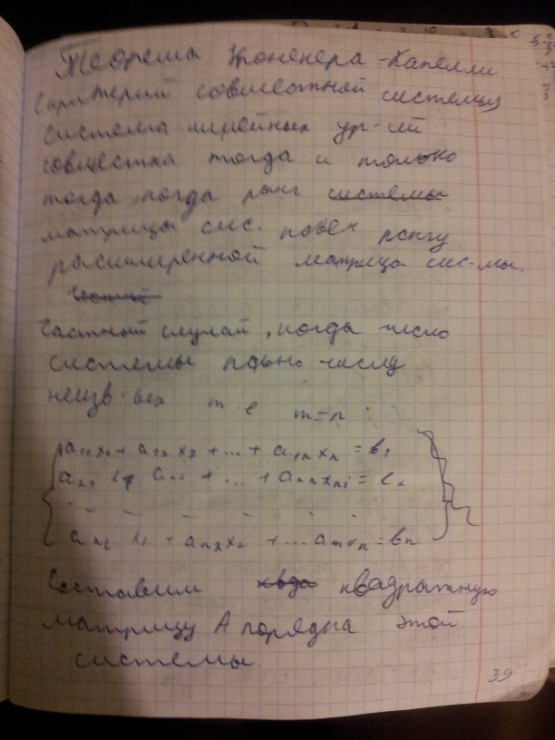 Теорема Кронекера-Капелли
(критерий совместной системы)
система линейных ур-ий
совместна тогда и только
тогда когда ранг системы
матрицы сис. равен рангу
расширенной матрицы сис-мы.
Частный
Частный случай, когда число
системы равно числу
неизв-ых т е m=n:
a₁₁x₁+ a₁₂ x₂ +...+ a₁ₙxₙ = b₁
+ ... +
a x + aₙ₂x₂ + ... = bₙ
Составим квадратную
матрицу A порядка этой
системы.
39